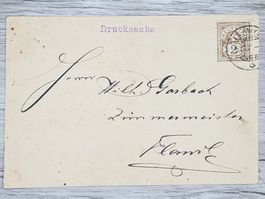 Drucksache
2
Herrn Wilh. Gerbach
Zimmermeister
Flawil